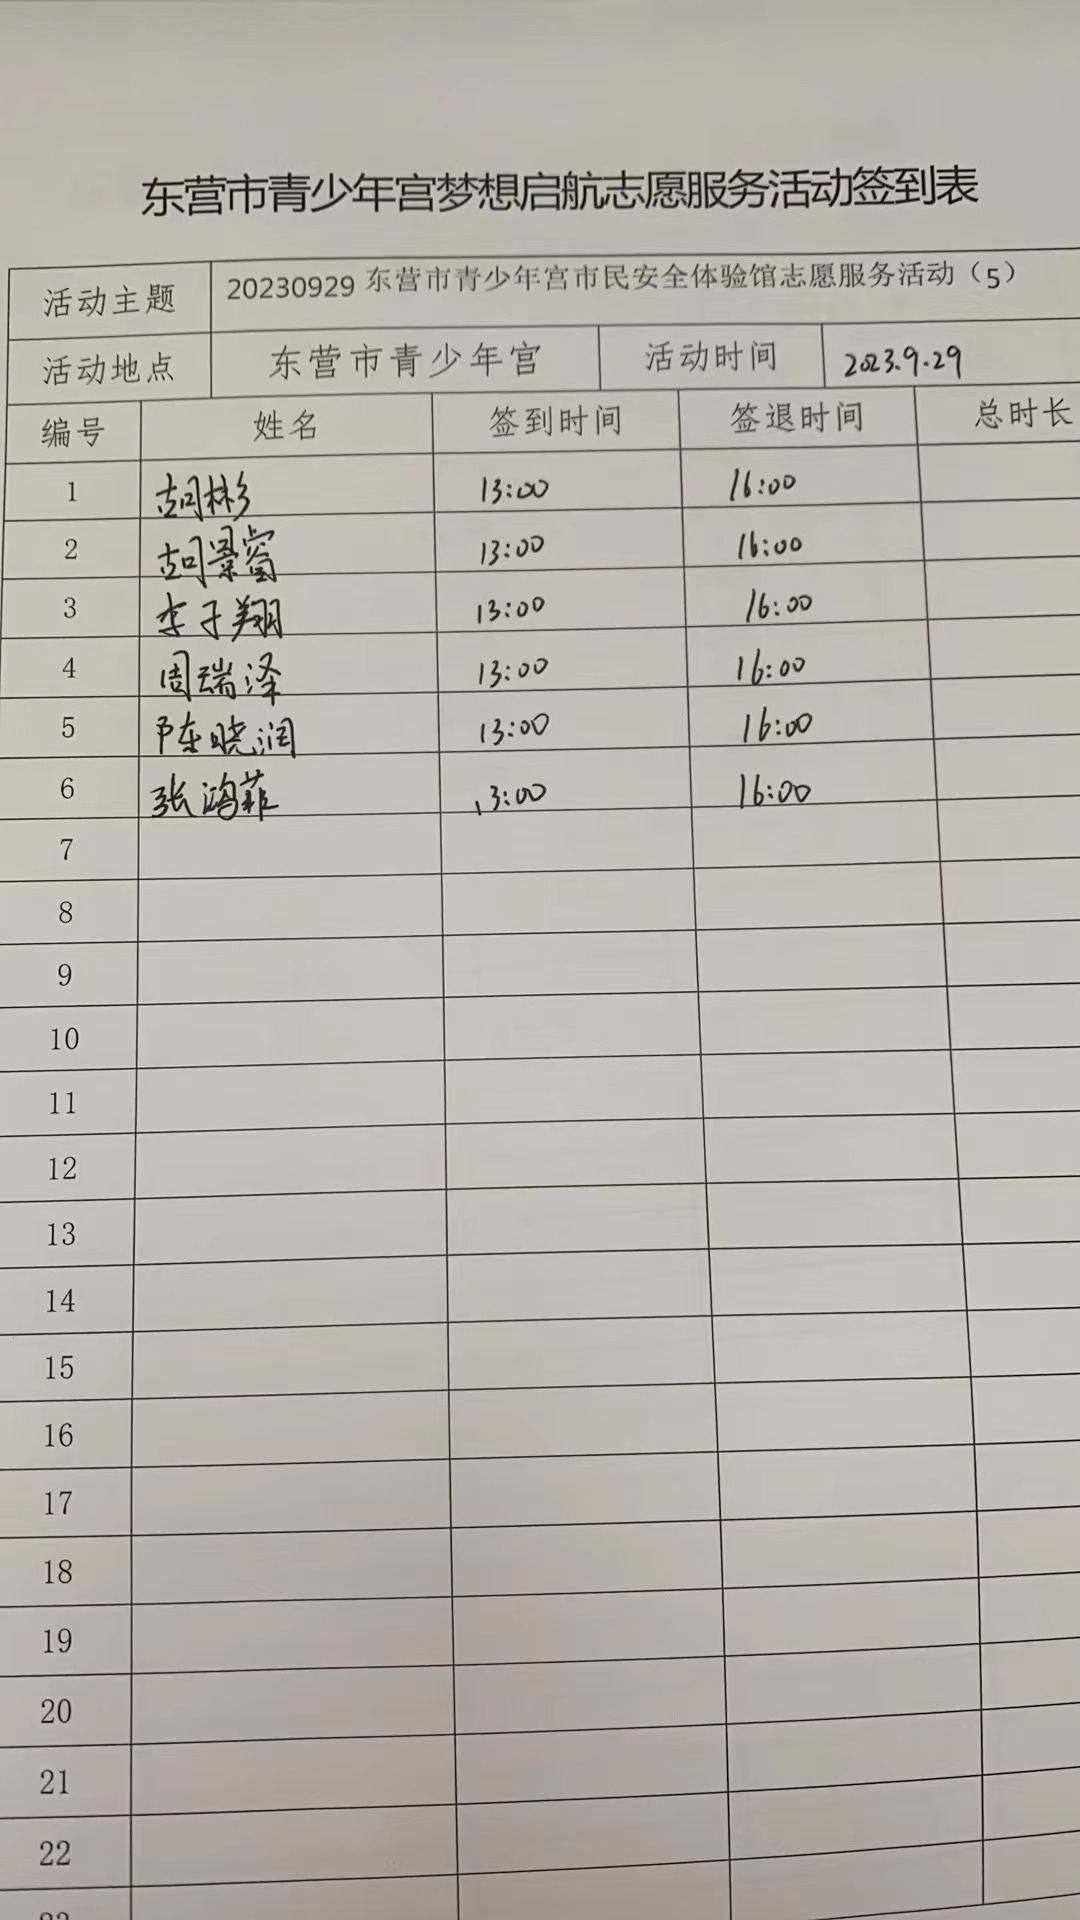 东营市青少年宫梦想启航志愿服务活动签到表
活动主题 20230929 东营市青少年宫市民安全体验馆志愿服务活动（5）
活动地点 东营市青少年宫 活动时间 2023.9.29
编号 姓名 签到时间 签退时间 总时长
1 胡彬 13:00 16:00
2 胡景 13:00 16:00
3 李子翔 13:00 16:00
4 周瑞泽 13:00 16:00
5 陈晓润 13:00 16:00
6 张鸿菲 13:00 16:00
7
8
9
10
11
12
13
14
15
16
17
18
19
20
21
22